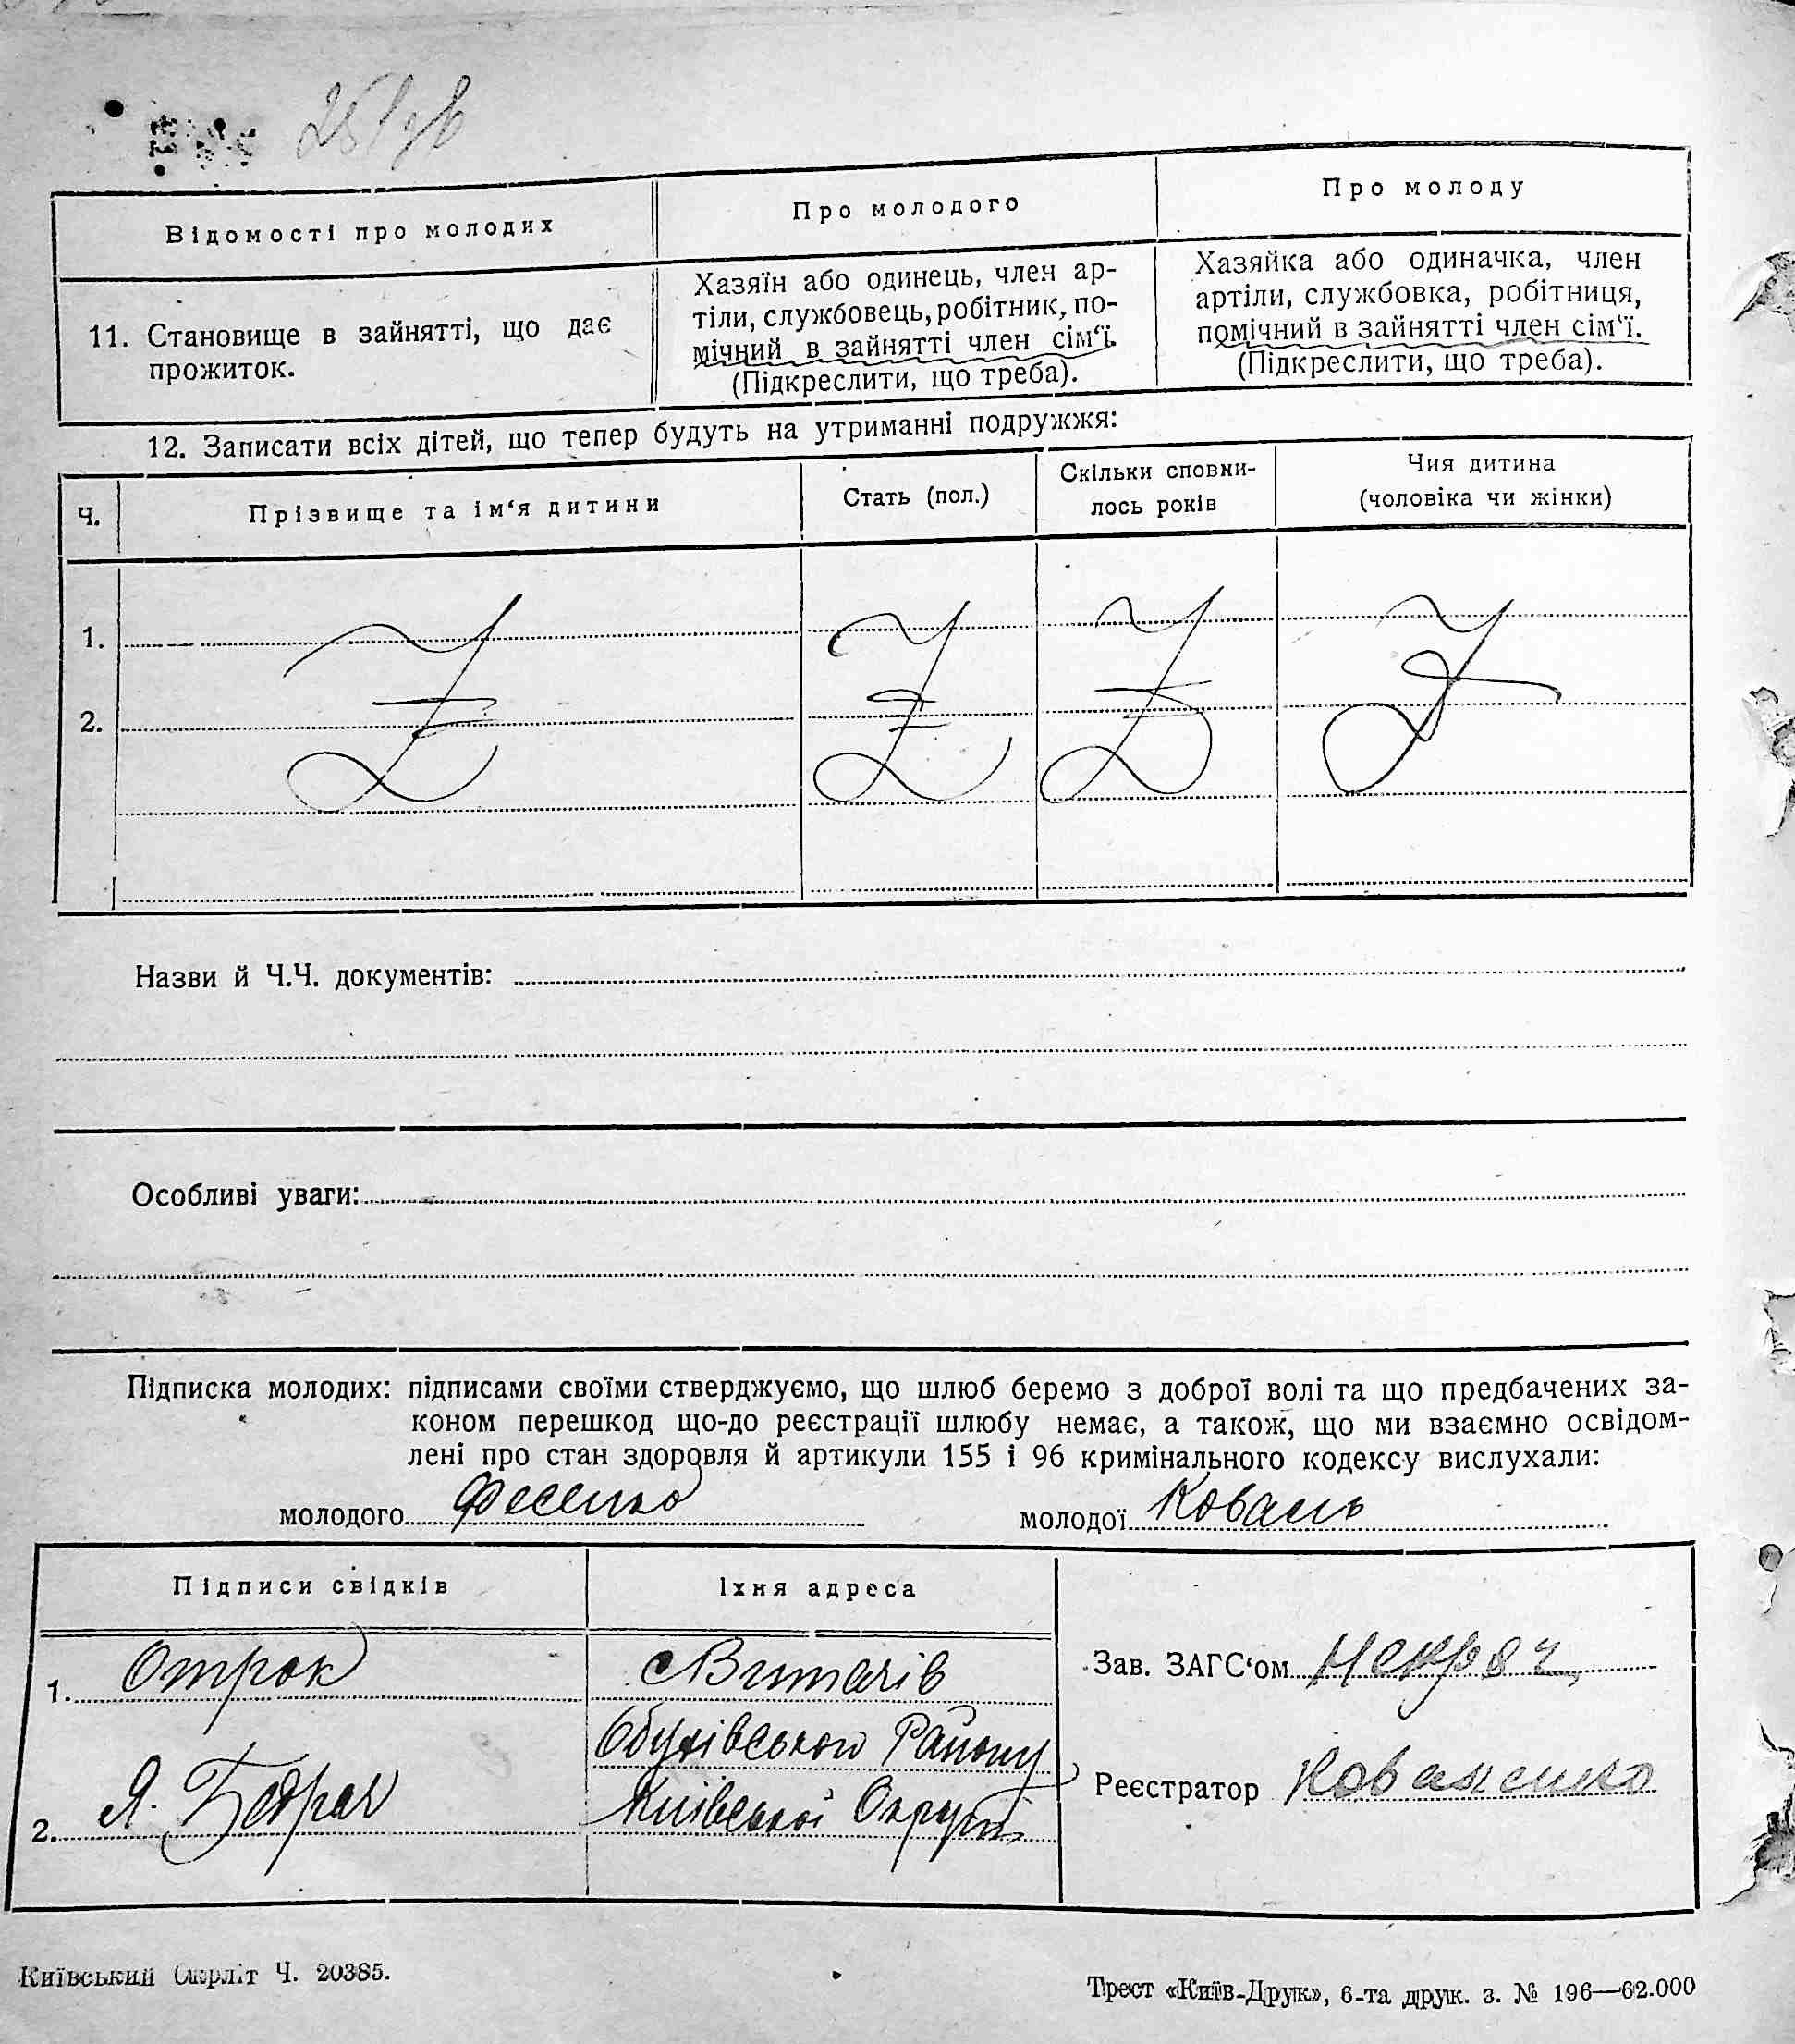 Відомості про молодих
Про молодого
Про молоду
11. Становище в зайнятті, що дає
прожиток.
Хазяїн або одинець, член ар-
тіли, службовець, робітник, по-
мічний в зайнятті член сім‘ї.
(Підкреслити, що треба).
Хазяйка або одиначка, член
артіли, службовка, робітниця,
помічний в зайнятті член сім‘ї.
(Підкреслити, що треба).
12. Записати всіх дітей, що тепер будуть на утриманні подружжя:
Ч.
Прізвище та ім‘я дитини
Стать (пол.)
Скільки сповни-
лось років
Чия дитина
(чоловіка чи жінки)
1.
2.
Назви й Ч.Ч. документів:
Особливі уваги:
Підписка молодих: підписами своїми стверджуємо, що шлюб беремо з доброї волі та що предбачених за-
коном перешкод що-до реєстрації шлюбу немає, а також, що ми взаємно освідом-
лені про стан здоровля й артикули 155 і 96 кримінального кодексу вислухали:
молодого Фесенко молодої Коваль
Підписи свідків
Їхня адреса
1. Отрок
с Витачів
Обухівського Району
2. Я. Бедрач
Київської Округи
Зав. ЗАГС‘ом Некряч
Реєстратор Коваленко
Київський Окрліт Ч. 20385.
Трест «Київ-Друк», 6-та друк. з. № 196—62.000